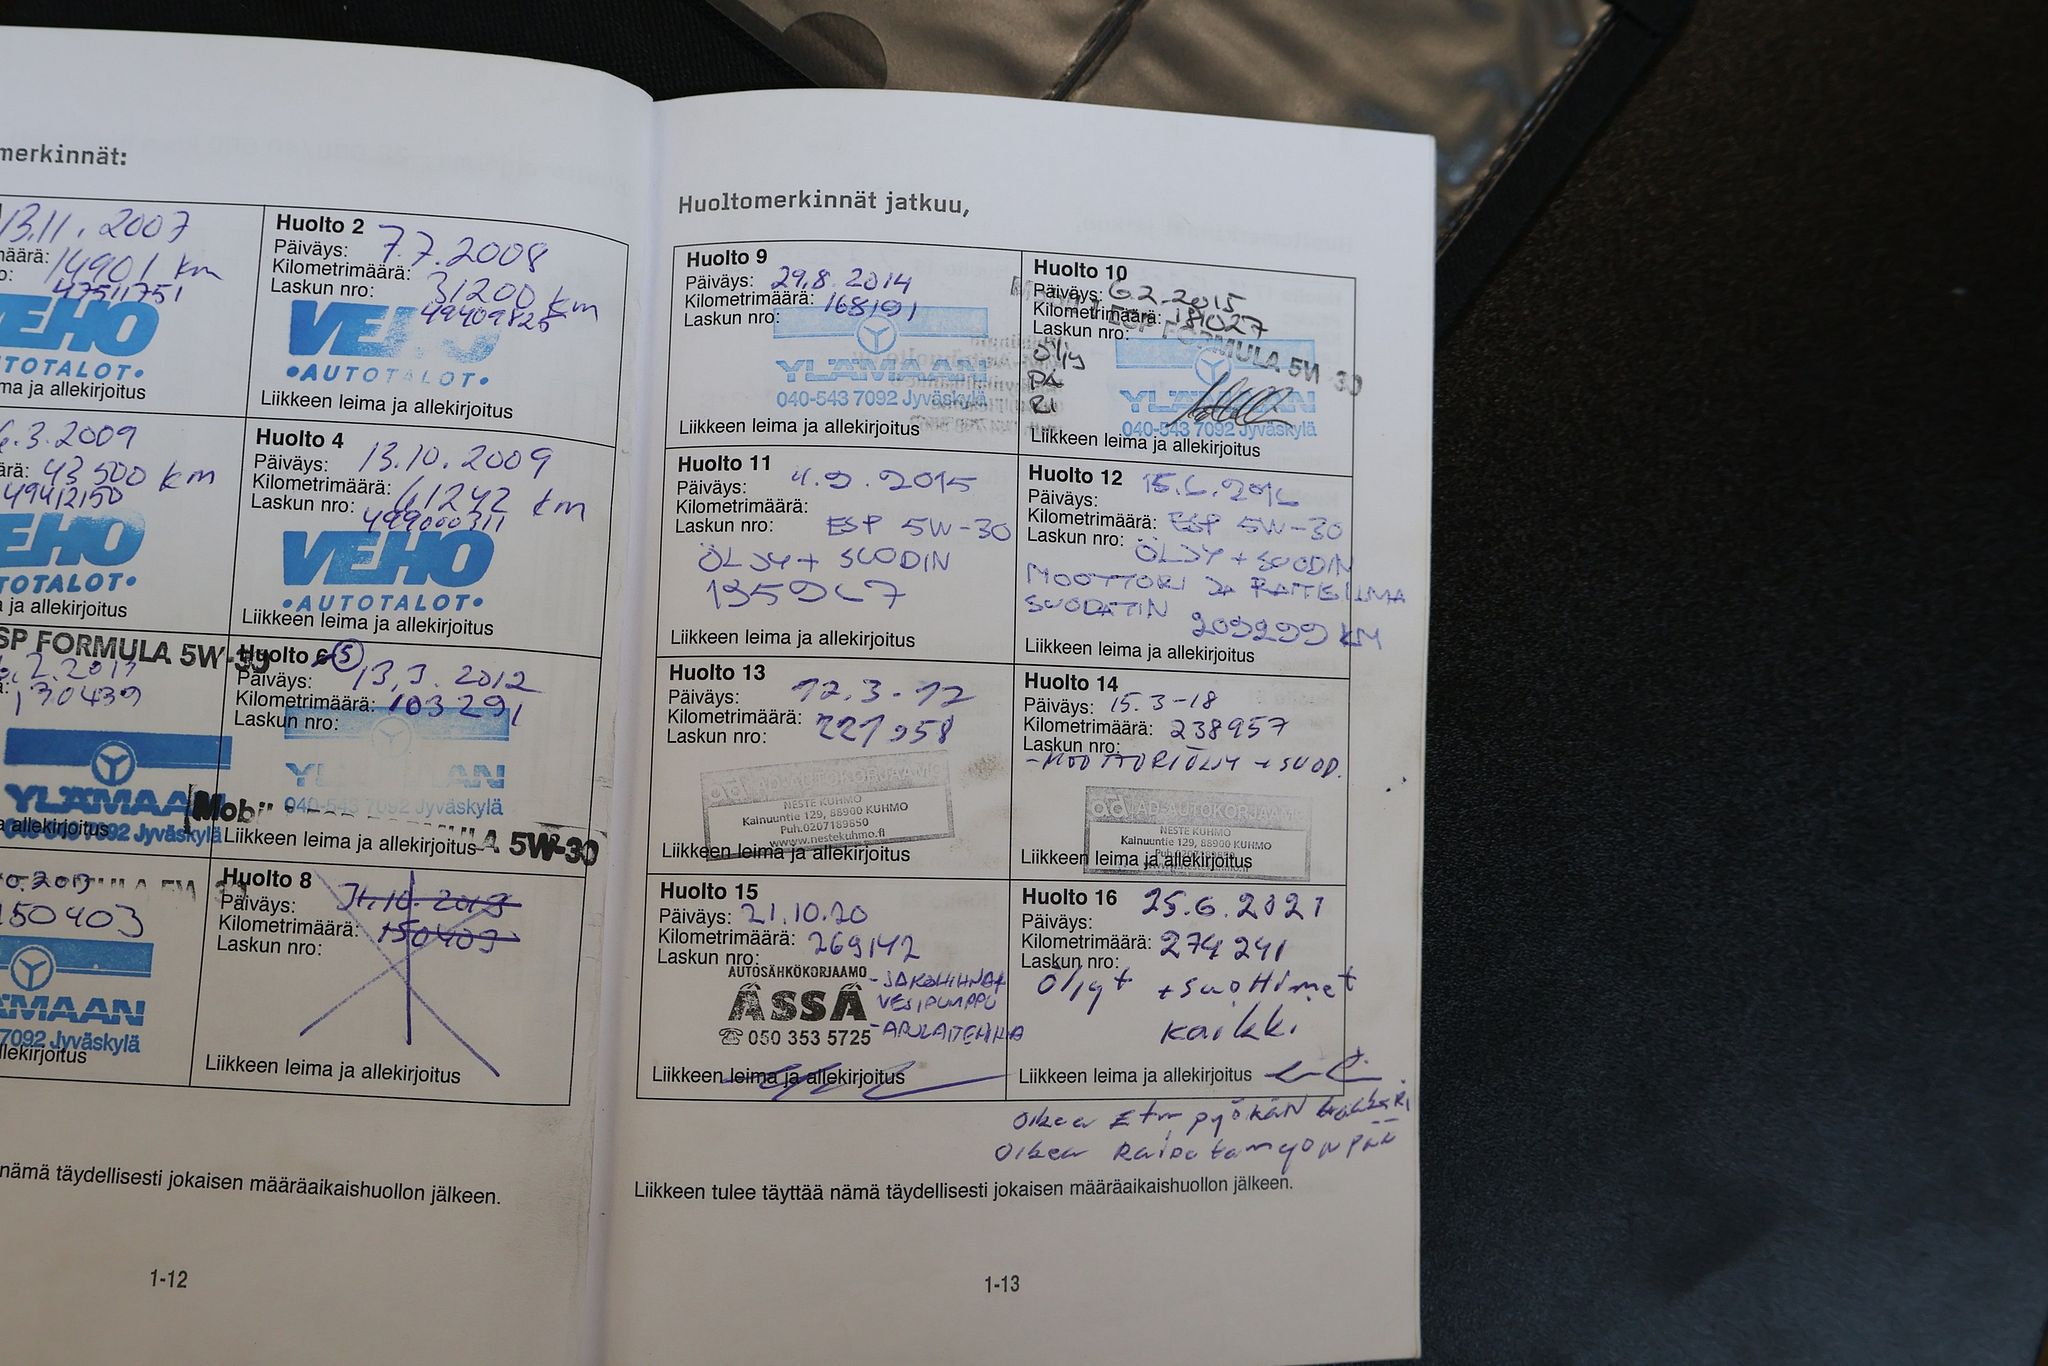 merkinnät:
13.11.2007
määrä: 14901 km
o: 47511751
VEHO
AUTOTALOT•
ma ja allekirjoitus
Huolto 2
Päiväys: 7.7.2008
Kilometrimäärä: 31200 km
Laskun nro: 49409825
VEHO
•AUTOTALOT•
Liikkeen leima ja allekirjoitus
6.3.2009
ärä: 43500 km
49412150
EHO
TOTALOT•
a ja allekirjoitus
Huolto 4
Päiväys: 13.10.2009
Kilometrimäärä: 61242 km
Laskun nro: 499000311
VEHO
•AUTOTALOT•
Liikkeen leima ja allekirjoitus
SP FORMULA 5W-30
2.2013
130439
YLÄMAAN
7092 Jyväskylä
a allekirjoitus
Huolto 6 5
Päiväys: 13.3.2012
Kilometrimäärä: 103291
Laskun nro:
YLÄMAAN
040-543 7092 Jyväskylä
Mobil FORMULA 5W-30
Liikkeen leima ja allekirjoitus
150403
ÄMAAN
7092 Jyväskylä
llekirjoitus
Huolto 8
Päiväys: 31.10.2013
Kilometrimäärä: 150403
Laskun nro:
Liikkeen leima ja allekirjoitus
nämä täydellisesti jokaisen määräaikaishuollon jälkeen.
1-12
Huoltomerkinnät jatkuu,
Huolto 9
Päiväys: 29.8.2014
Kilometrimäärä: 168191
Laskun nro:
YLÄMAAN
040-543 7092 Jyväskylä
Liikkeen leima ja allekirjoitus
Huolto 10
Päiväys: 6.2.2015
Kilometrimäärä: 181027
Laskun nro:
ESP FORMULA 5W-30
Öljy
PA
RI
YLÄMAAN
040-543 7092 Jyväskylä
Liikkeen leima ja allekirjoitus
Huolto 11
Päiväys: 4.9.2015
Kilometrimäärä:
Laskun nro: ESP 5W-30
ÖLJY + SUODIN
195967
Liikkeen leima ja allekirjoitus
Huolto 12
Päiväys: 15.6.2016
Kilometrimäärä: ESP 5W-30
Laskun nro: ÖLJY + SUODIN
MOOTTORI JA RAITISILMA
SUODATIN
209299 KM
Liikkeen leima ja allekirjoitus
Huolto 13
Päiväys: 12.3-17
Kilometrimäärä: 221958
Laskun nro:
ad AD-AUTOKORJAAMO
NESTE KUHMO
Kainuuntie 129, 88900 KUHMO
Puh.0207189850
www.nestekuhmo.fi
Liikkeen leima ja allekirjoitus
Huolto 14
Päiväys: 15.3-18
Kilometrimäärä: 238957
Laskun nro:
-MOOTTORIÖLJY + SUOD.
ad AD-AUTOKORJAAMO
NESTE KUHMO
Kainuuntie 129, 88900 KUHMO
Liikkeen leima ja allekirjoitus
Huolto 15
Päiväys: 21.10.20
Kilometrimäärä: 269142
Laskun nro:
AUTOSÄHKÖKORJAAMO -JAKOHIHNA+
ÄSSÄ VESIPUMPPU
☎ 050 353 5725 -APULAITEHIHNA
Liikkeen leima ja allekirjoitus
Huolto 16
Päiväys: 25.6.2021
Kilometrimäärä: 274241
Laskun nro:
Öljyt + suottimet
kaikki
Liikkeen leima ja allekirjoitus
Oikea Etu pyörän laakeri
Oikea Raidetangon pää
Liikkeen tulee täyttää nämä täydellisesti jokaisen määräaikaishuollon jälkeen.
1-13